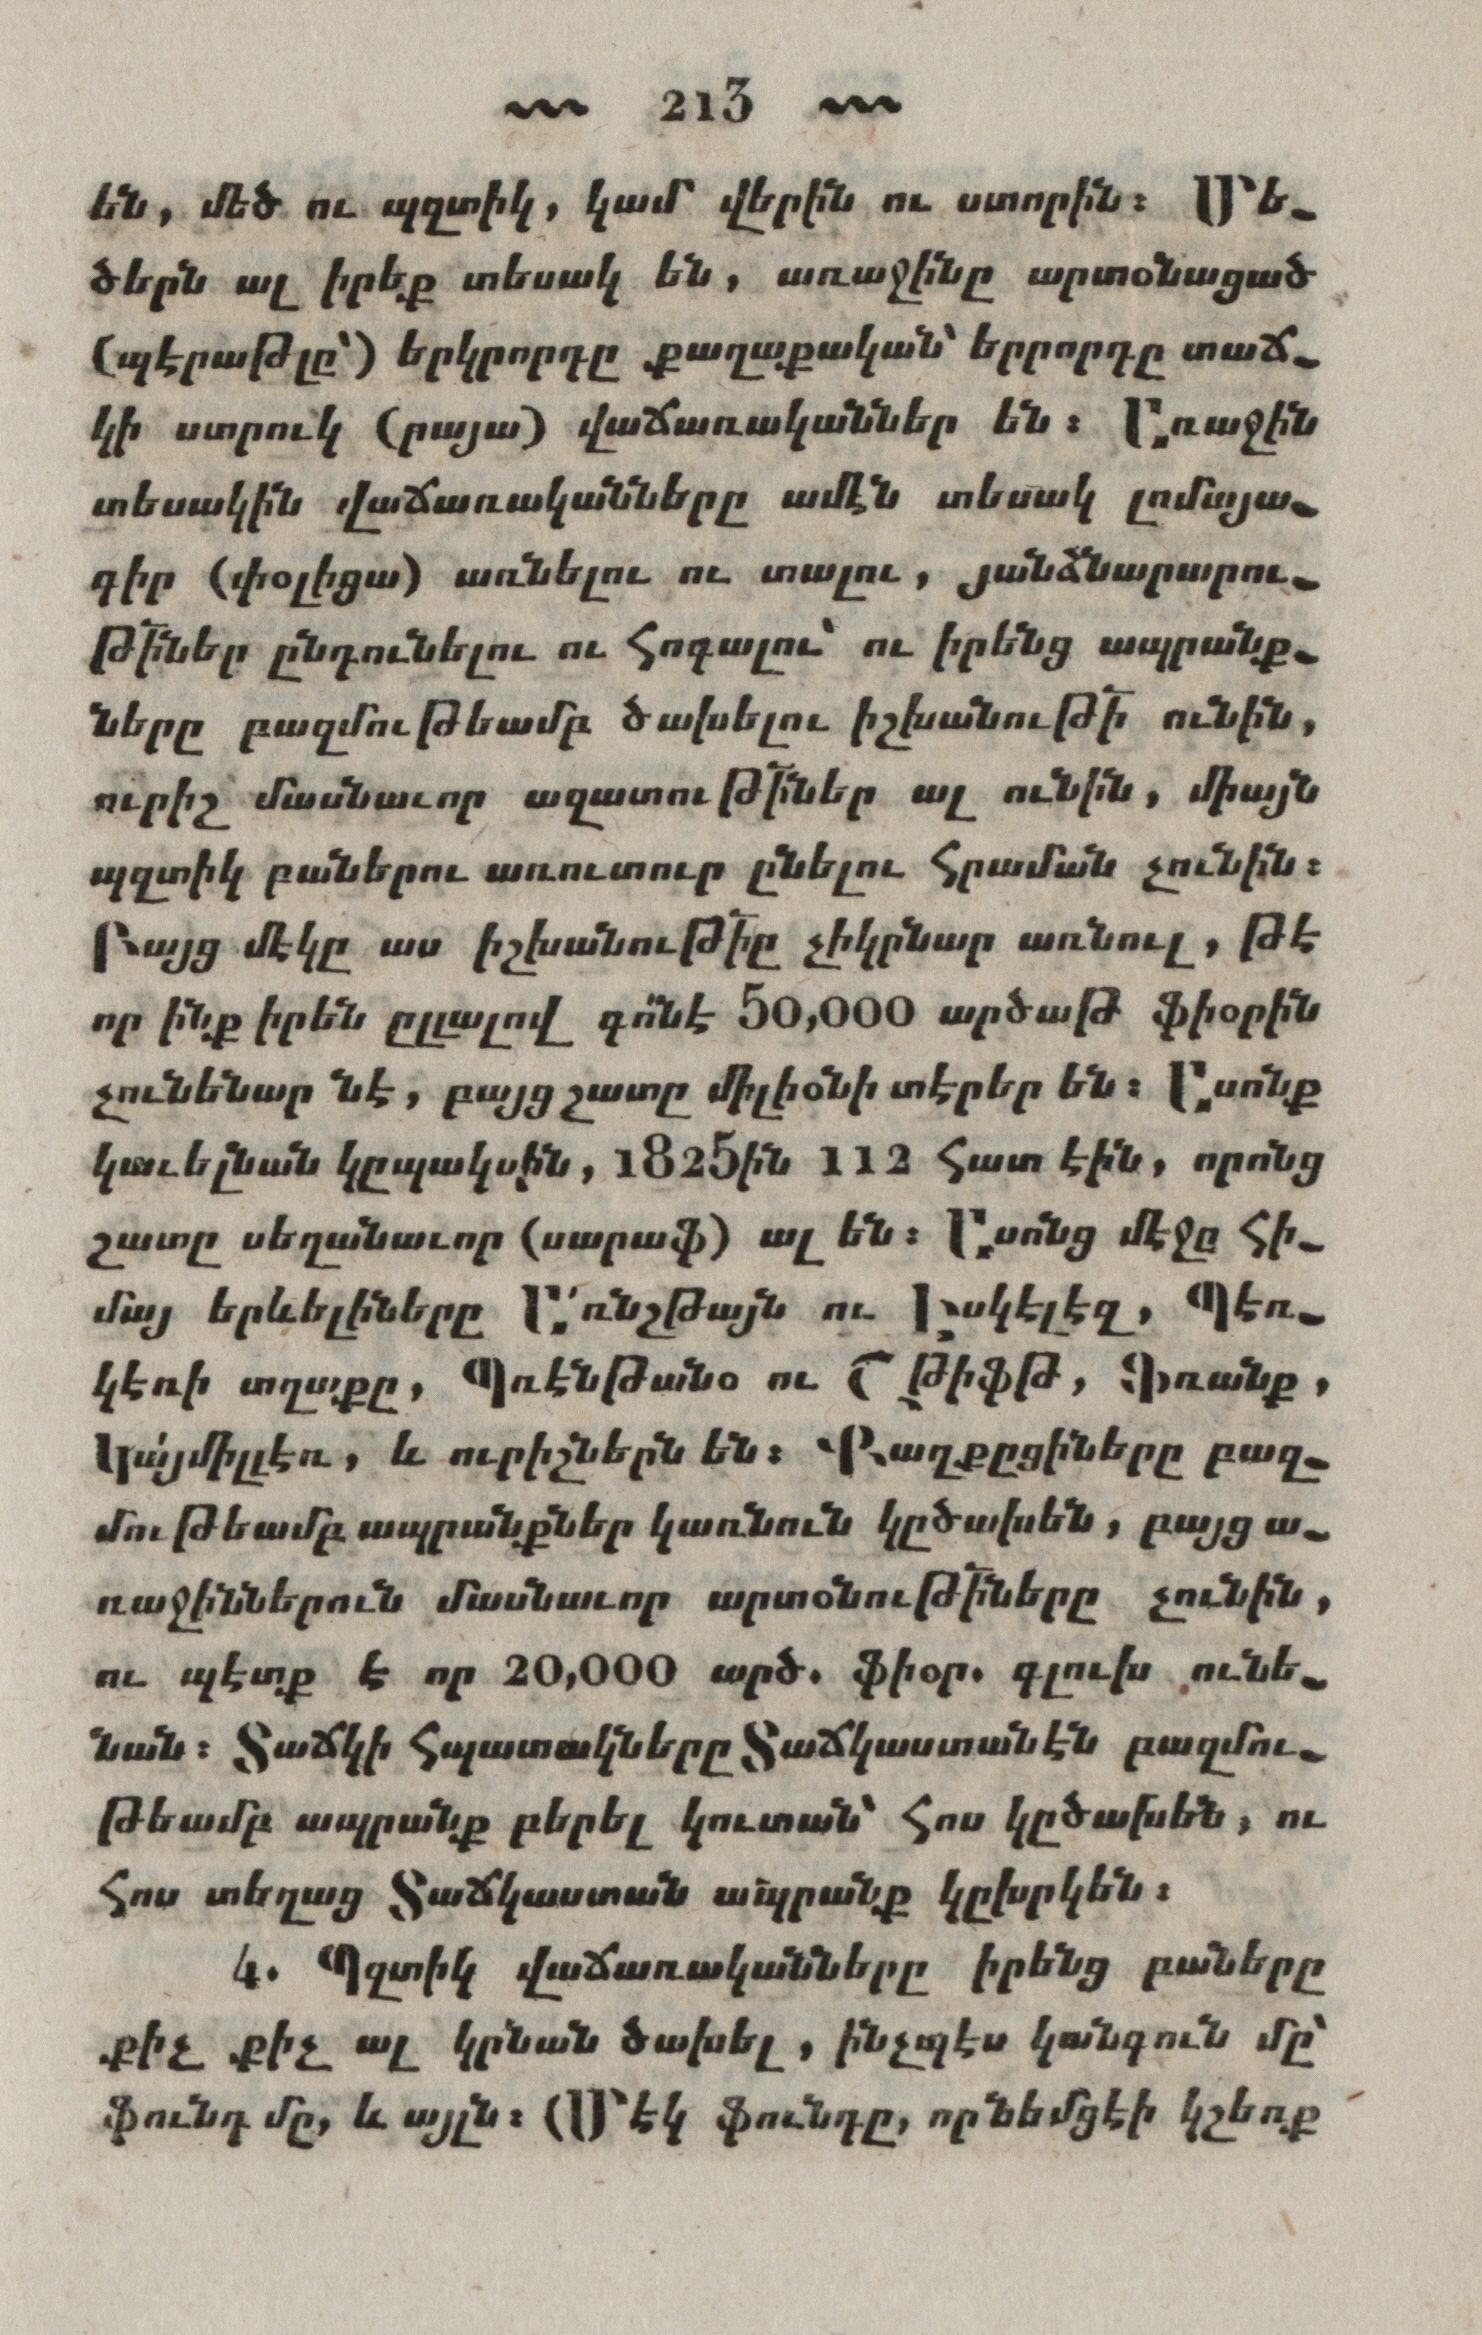 213
են, մեծ ու պզտիկ, կամ՝ վերին ու ստորին։ Մե֊
ծերն ալ իրեք տեսակ են, առաջինը արտօնացած
(պէրաթլը՝) երկրորդը քաղաքական՝ երրորդը տաճ֊
կի ստրուկ (րայա) վաճառականներ են։ Առաջին
տեսակին վաճառականները ամէն տեսակ լումայա֊
գիր (փօլիցա) առնելու ու տալու, յանձնարարու֊
թի̄ներ ընդունելու ու հոգալու՝ ու իրենց ապրանք֊
ները բազմութեամբ ծախելու իշխանութի̄ ունին,
ուրիշ մասնաւոր ազատութի̄ներ ալ ունին, միայն
պզտիկ բաներու առուտուր ընելու հրաման չունին։
Բայց մէկը աս իշխանութի̄ը չիկրնար առնուլ, թէ
որ ինք իրեն ըլլալով գո՛նէ 50,000 արծաթ ֆիօրին
չունենար նէ, բայց շատը միլիօնի տէրեր են։ Ասոնք
կաւելնան կըպակսին, 1825ին 112 հատ էին, որոնց
շատը սեղանաւոր (սարաֆ) ալ են։ Ասոնց մէջը հի֊
մայ երևելիները Ա՛ռնշթայն ու Էսկէլէզ, Պէռ֊
կէռի տղաքը, Պռէնթանօ ու Շթիֆթ, Ֆռանք,
Կա՛յմիլլէռ, և ուրիշներն են։ Քաղքըցիները բազ֊
մութեամբ ապրանքներ կառնուն կըծախեն, բայց ա֊
ռաջիններուն մասնաւոր արտօնութի̄ները չունին,
ու պէտք է որ 20,000 արծ. ֆիօր. գլուխ ունե֊
նան։ Տաճկի հպատակները Տաճկաստանէն բազմու֊
թեամբ ապրանք բերել կուտան՝ հոս կըծախեն, ու
հոս տեղաց Տաճկաստան ապրանք կըխրկեն։
4. Պզտիկ վաճառականները իրենց բաները
քիչ քիչ ալ կրնան ծախել, ինչպէս կանգուն մը՝
ֆունդ մը, և այլն։ (Մէկ ֆունդը, որ նեմցէի կշեռք